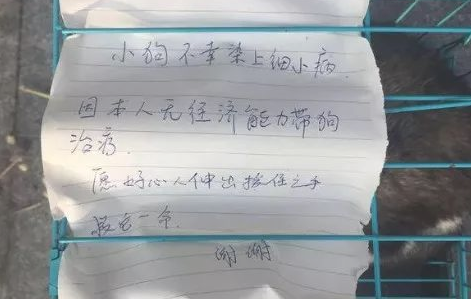 小狗不幸染上细小病
因本人无经济能力带狗
治疗.
愿好心人伸出援住之手
救它一命.
谢谢